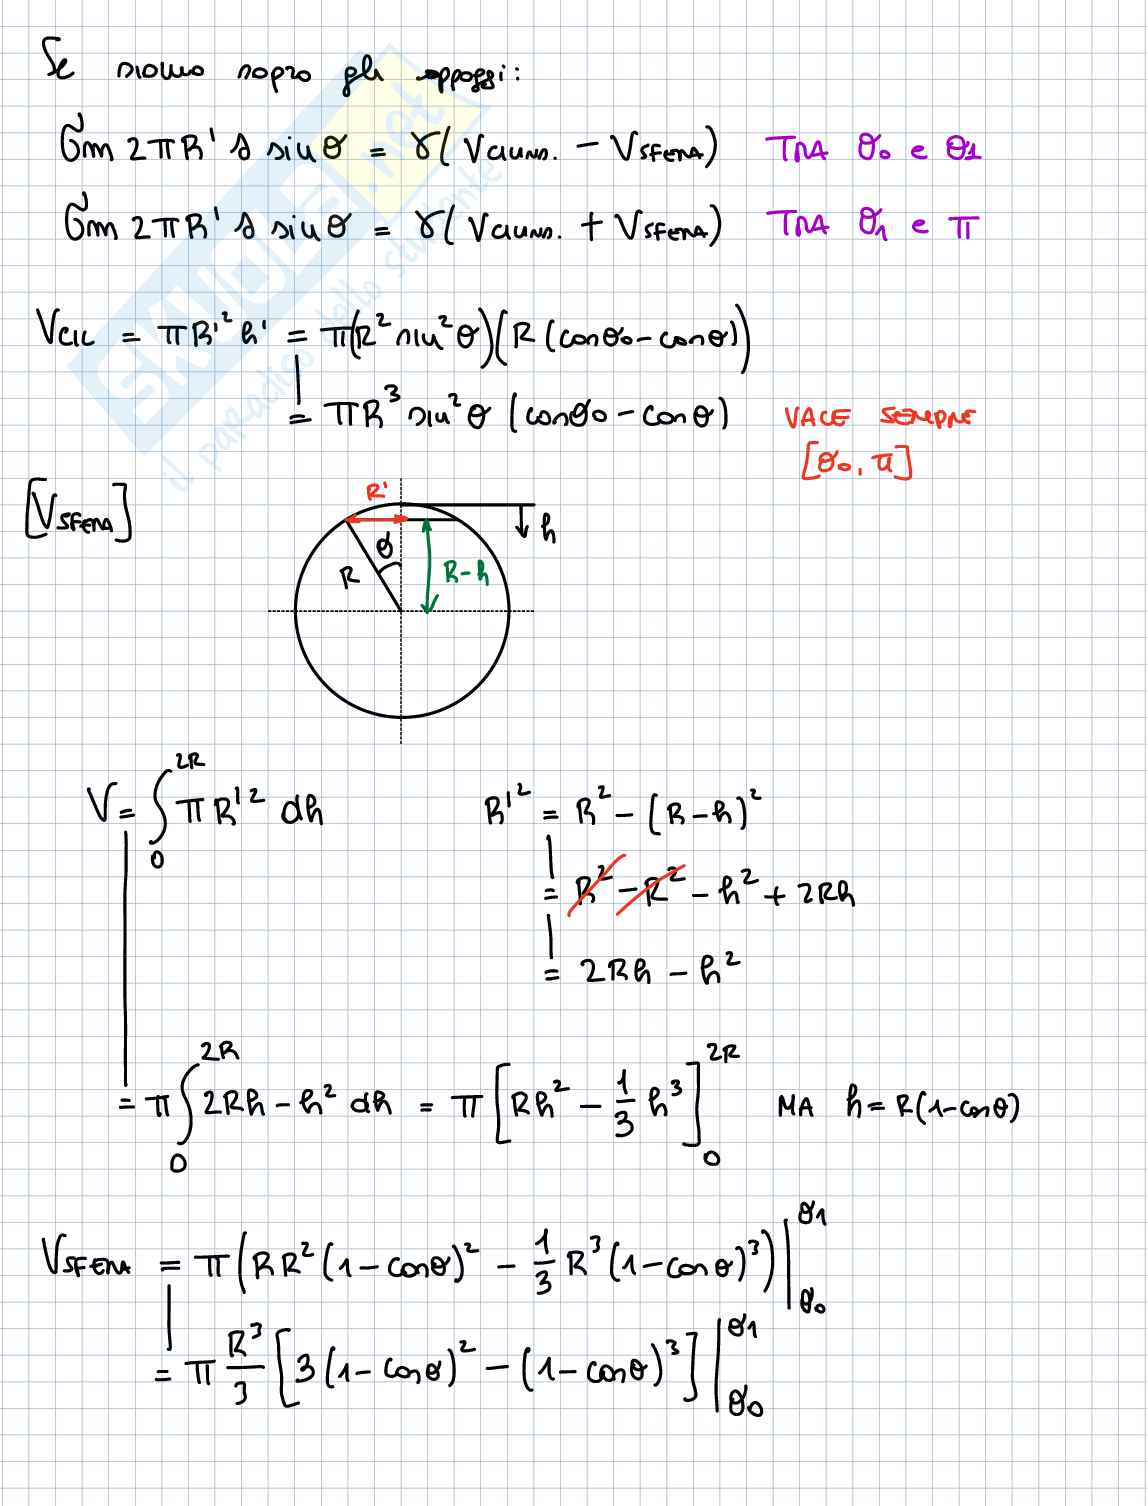 Se siamo sopra gli appoggi:
σm 2πR' s sinθ = γ(Vcilind. - Vsfera) TRA θ0 e θ1
σm 2πR' s sinθ = γ(Vcilind. + Vsfera) TRA θ1 e π
Vcil = πR'² h' = π(R² sin²θ)(R(cosθ0 - cosθ))
= πR³ sin²θ (cosθ0 - cosθ) VALE SEMPRE
[θ0, π]
[Vsfera]
R'
h
θ
R
R-h
V = ∫₀²ᴿ πR'² dh R'² = R² - (R-h)²
= R² - R² - h² + 2Rh
= 2Rh - h²
= π ∫₀²ᴿ 2Rh - h² dh = π [Rh² - 1/3 h³]₀²ᴿ MA h = R(1-cosθ)
Vsfera = π (RR²(1-cosθ)² - 1/3 R³(1-cosθ)³) |θ0 θ1
= π R³/3 [3(1-cosθ)² - (1-cosθ)³] |θ0 θ1
SKUOLA.net
il paradiso dello studente